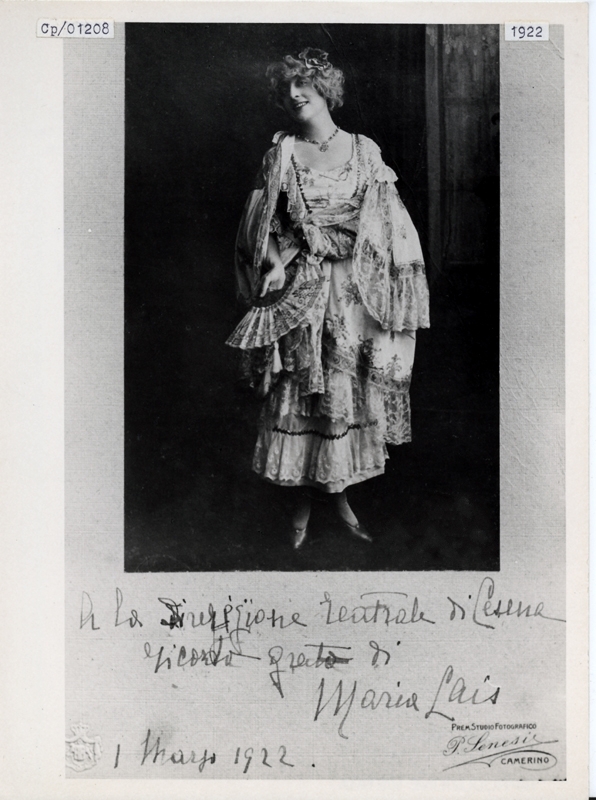 Cp/01208
1922
A la Direzzione Teatrale di Cesena
ricordo grato di
Maria Lais
1 Marzo 1922.
PREM. STUDIO FOTOGRAFICO
P. Senesi
CAMERINO